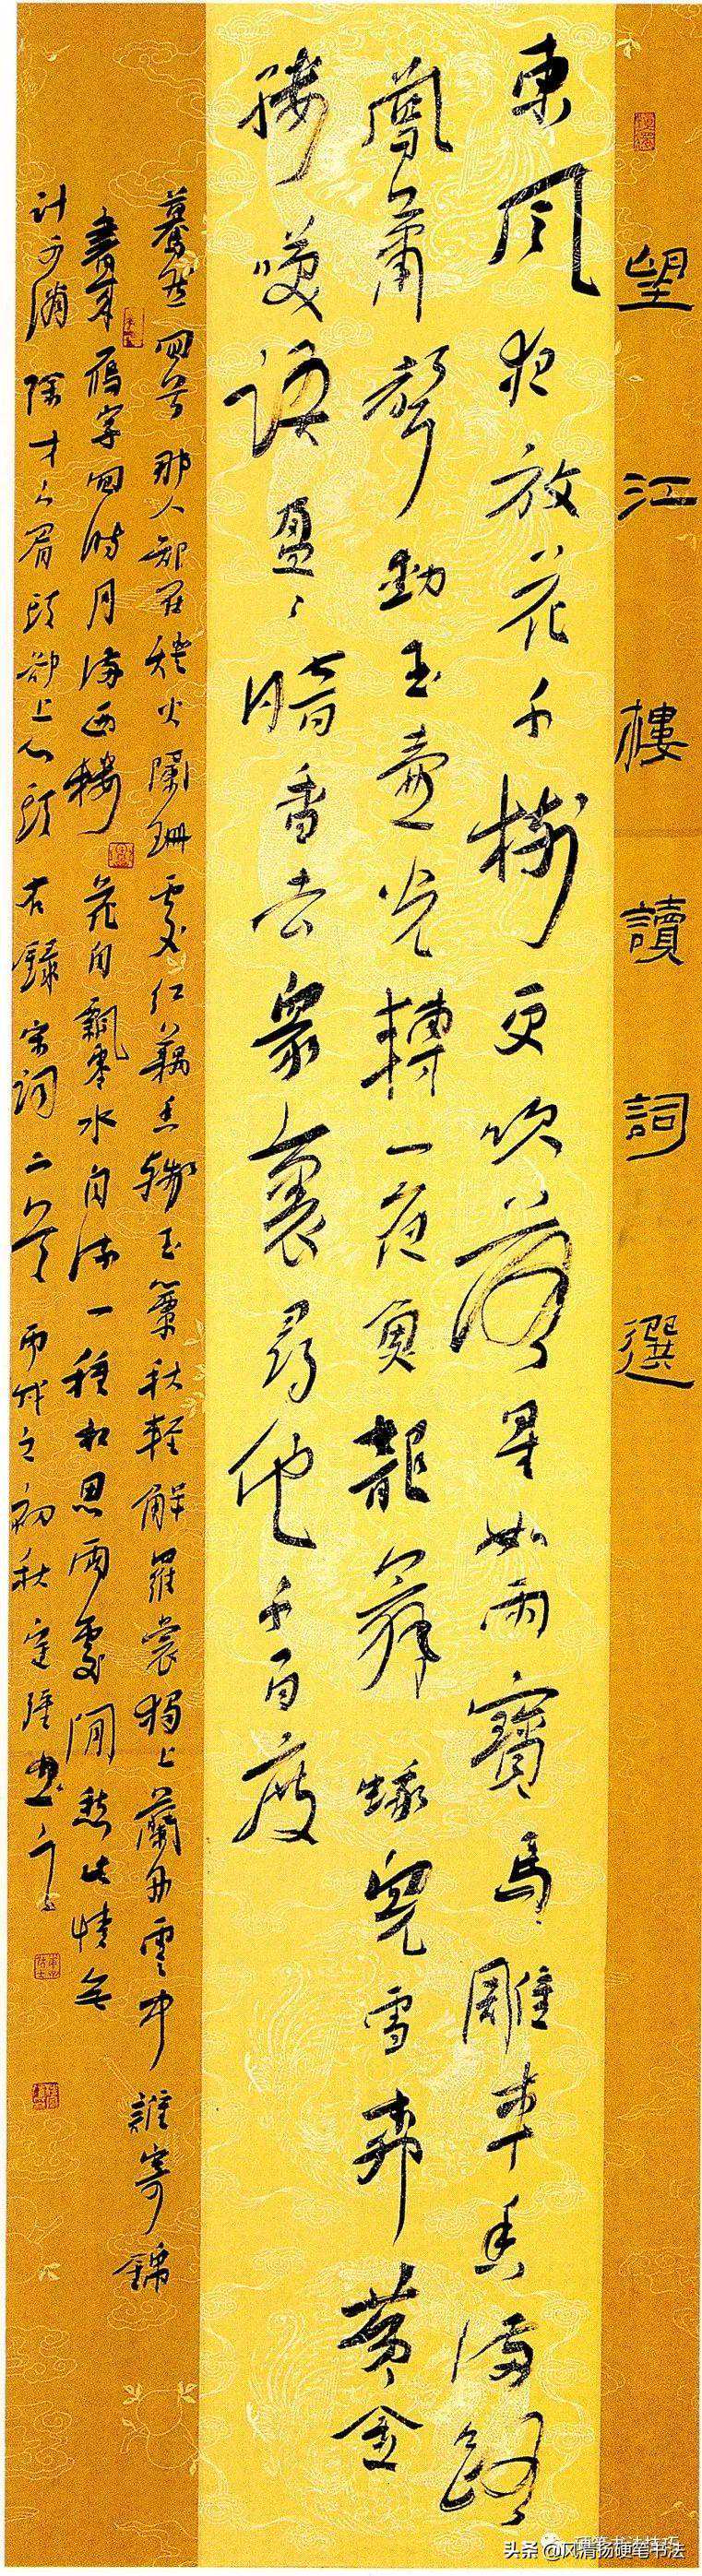 望江樓讀詞選
東風夜放花千樹更吹落星如雨寶馬雕車香滿路
鳳簫聲動玉壺光轉一夜魚龍舞蛾兒雪柳黃金
縷笑語盈々暗香去衆裏尋他千百度
驀然回首那人卻在燈火闌珊處紅藕香殘玉簟秋輕解羅裳獨上蘭舟雲中誰寄錦
書來雁字回時月滿西樓花自飄零水自流一種相思兩處閒愁此情無
計可消除才下眉頭卻上心頭右錄宋詞二首丙戌之初秋
头条 @风清扬硬笔书法